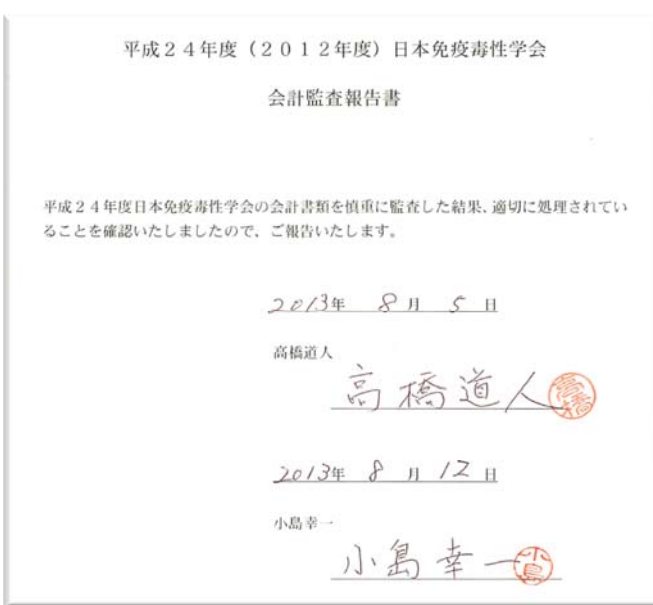 平成24年度(2012年度)日本免疫毒性学会
会計監査報告書
平成24年度日本免疫毒性学会の会計書類を慎重に監査した結果、適切に処理されてい
ることを確認いたしましたので、ご報告いたします。
2013年 8月 5日
高橋道人
高橋道人 高橋
2013年 8月 12日
小島幸一
小島幸一 小島